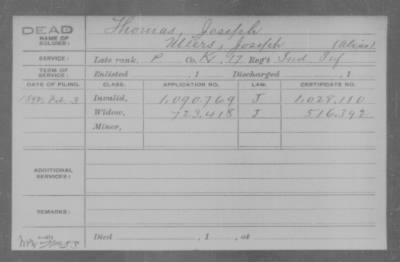 DEAD
NAME OF SOLDIER: Thomas, Joseph
Utters, Joseph (Alias)
SERVICE: Late rank, P Co. K, 17 Reg't Ind Inf
TERM OF SERVICE: Enlisted , 1 Discharged , 1
DATE OF FILING. CLASS. APPLICATION NO. LAW. CERTIFICATE NO.
Feb. 3 Invalid, 1,090,769 J 1,028,110
Widow, 723,418 J 516,392
Minor,
ADDITIONAL SERVICES:
REMARKS:
Died , 1 , at